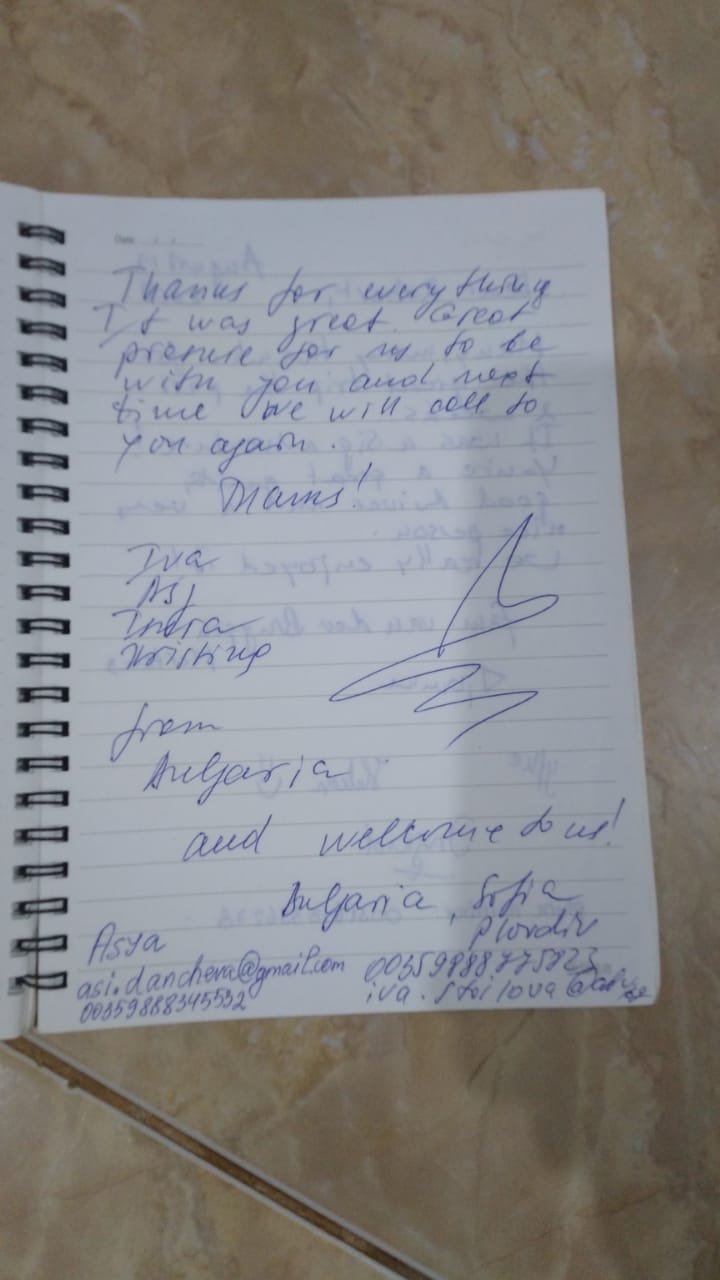 Date
Thanks for everything
It was great. Great
presure for us to be
with you and next
time we will call to
you again.
Thanks!
Iva
Asj
Indra
Kristina
from
Bulgaria
and welcome to us!
Bulgaria, Sofia
Plovdiv
Asya
asi.dancheva@gmail.com
00359888345532
00359888775823
iva.stoilova@